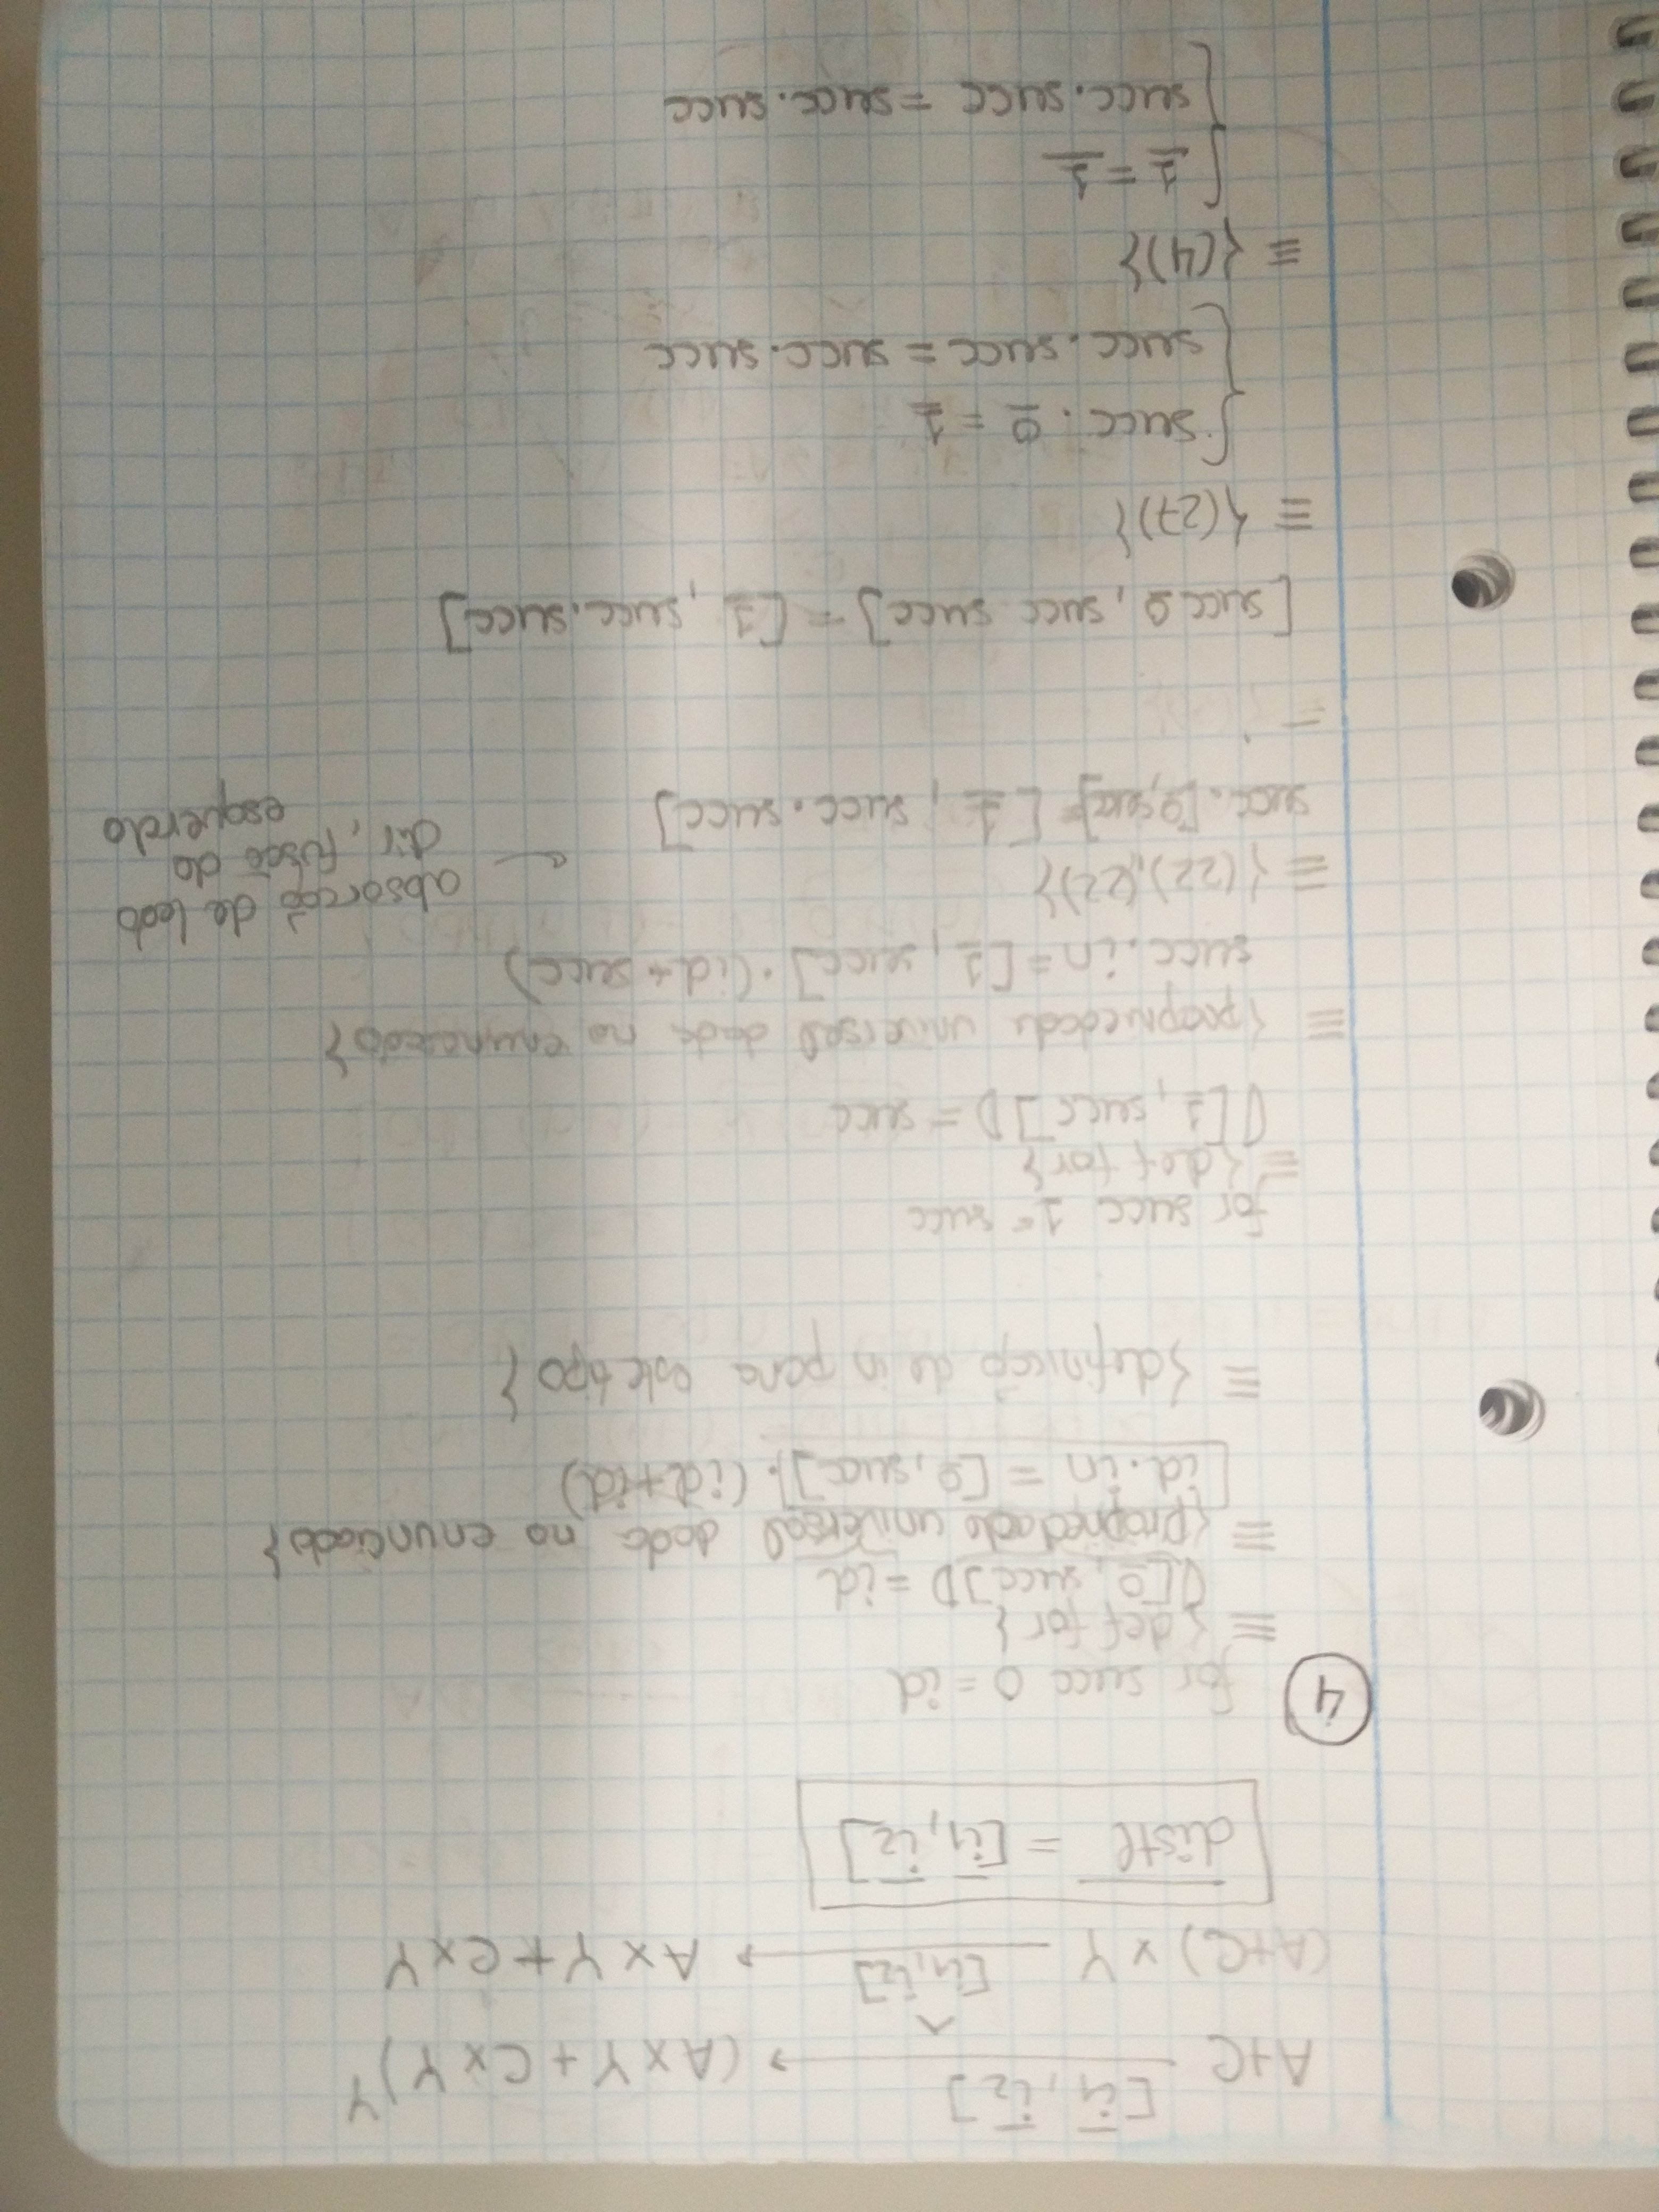 [i̅₁, i̅₂]
A+C ⟶ (A×Y + C×Y)^Y
[i̅₁, i̅₂]^
(A+C) × Y ⟶ A×Y + C×Y
d̅i̅s̅t̅l̅ = [i̅₁, i̅₂]
④ for succ 0 = id
≡ {def for}
⦇[0̲, succ]⦈ = id
≡ {Propriedade universal dada no enunciado}
id.in = [0̲, succ].(id+id)
≡ {definição de in para este tipo}
for succ 1 = succ
≡ {def for}
⦇[1̲, succ]⦈ = succ
≡ {propriedade universal dada no enunciado}
succ.in = [1̲, succ].(id+succ)
≡ {(22),(22)}
← absorção de lado
dir, fusão do
esquerdo
succ.[0̲,succ] = [1̲, succ.succ]
=
[succ 0̲, succ succ] = [1̲, succ.succ]
≡ {(27)}
{ succ.0̲ = 1̲
succ.succ = succ.succ
≡ {(4)}
{ 1̲ = 1̲
succ.succ = succ.succ